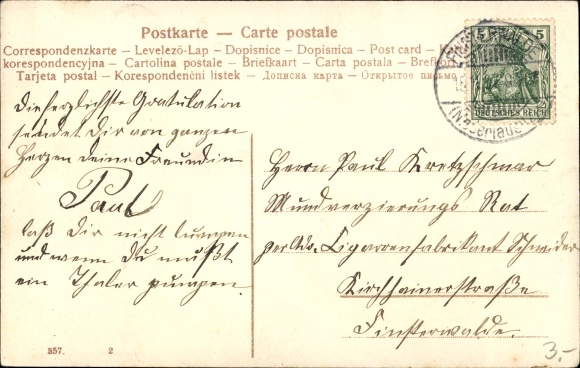 Postkarte — Carte postale
Correspondenzkarte – Levelező-Lap – Dopisnice – Dopisnica – Post card –
korespondencyjna – Cartolina postale – Briefkaart – Carta postala – Brefkort
Tarjeta postal – Korespondenční listek – Дописна карта – Открытое письмо
5 5
DEUTSCHES REICH
FINSTERWALDE
(Niederlausitz)
Die herzlichste Gratulation
sendet Dir von ganzen
Herzen Deine Freundin
Paul
laß Dir nicht lumpen
und wenn Du mußt
ein Thaler pumpen.
Herrn Paul Kretzschmar
Mundverzierungs Rat
per Adr. Cigarrenfabrikant Schneider
Kirchhainerstraße
Finsterwalde.
357. 2
3.-